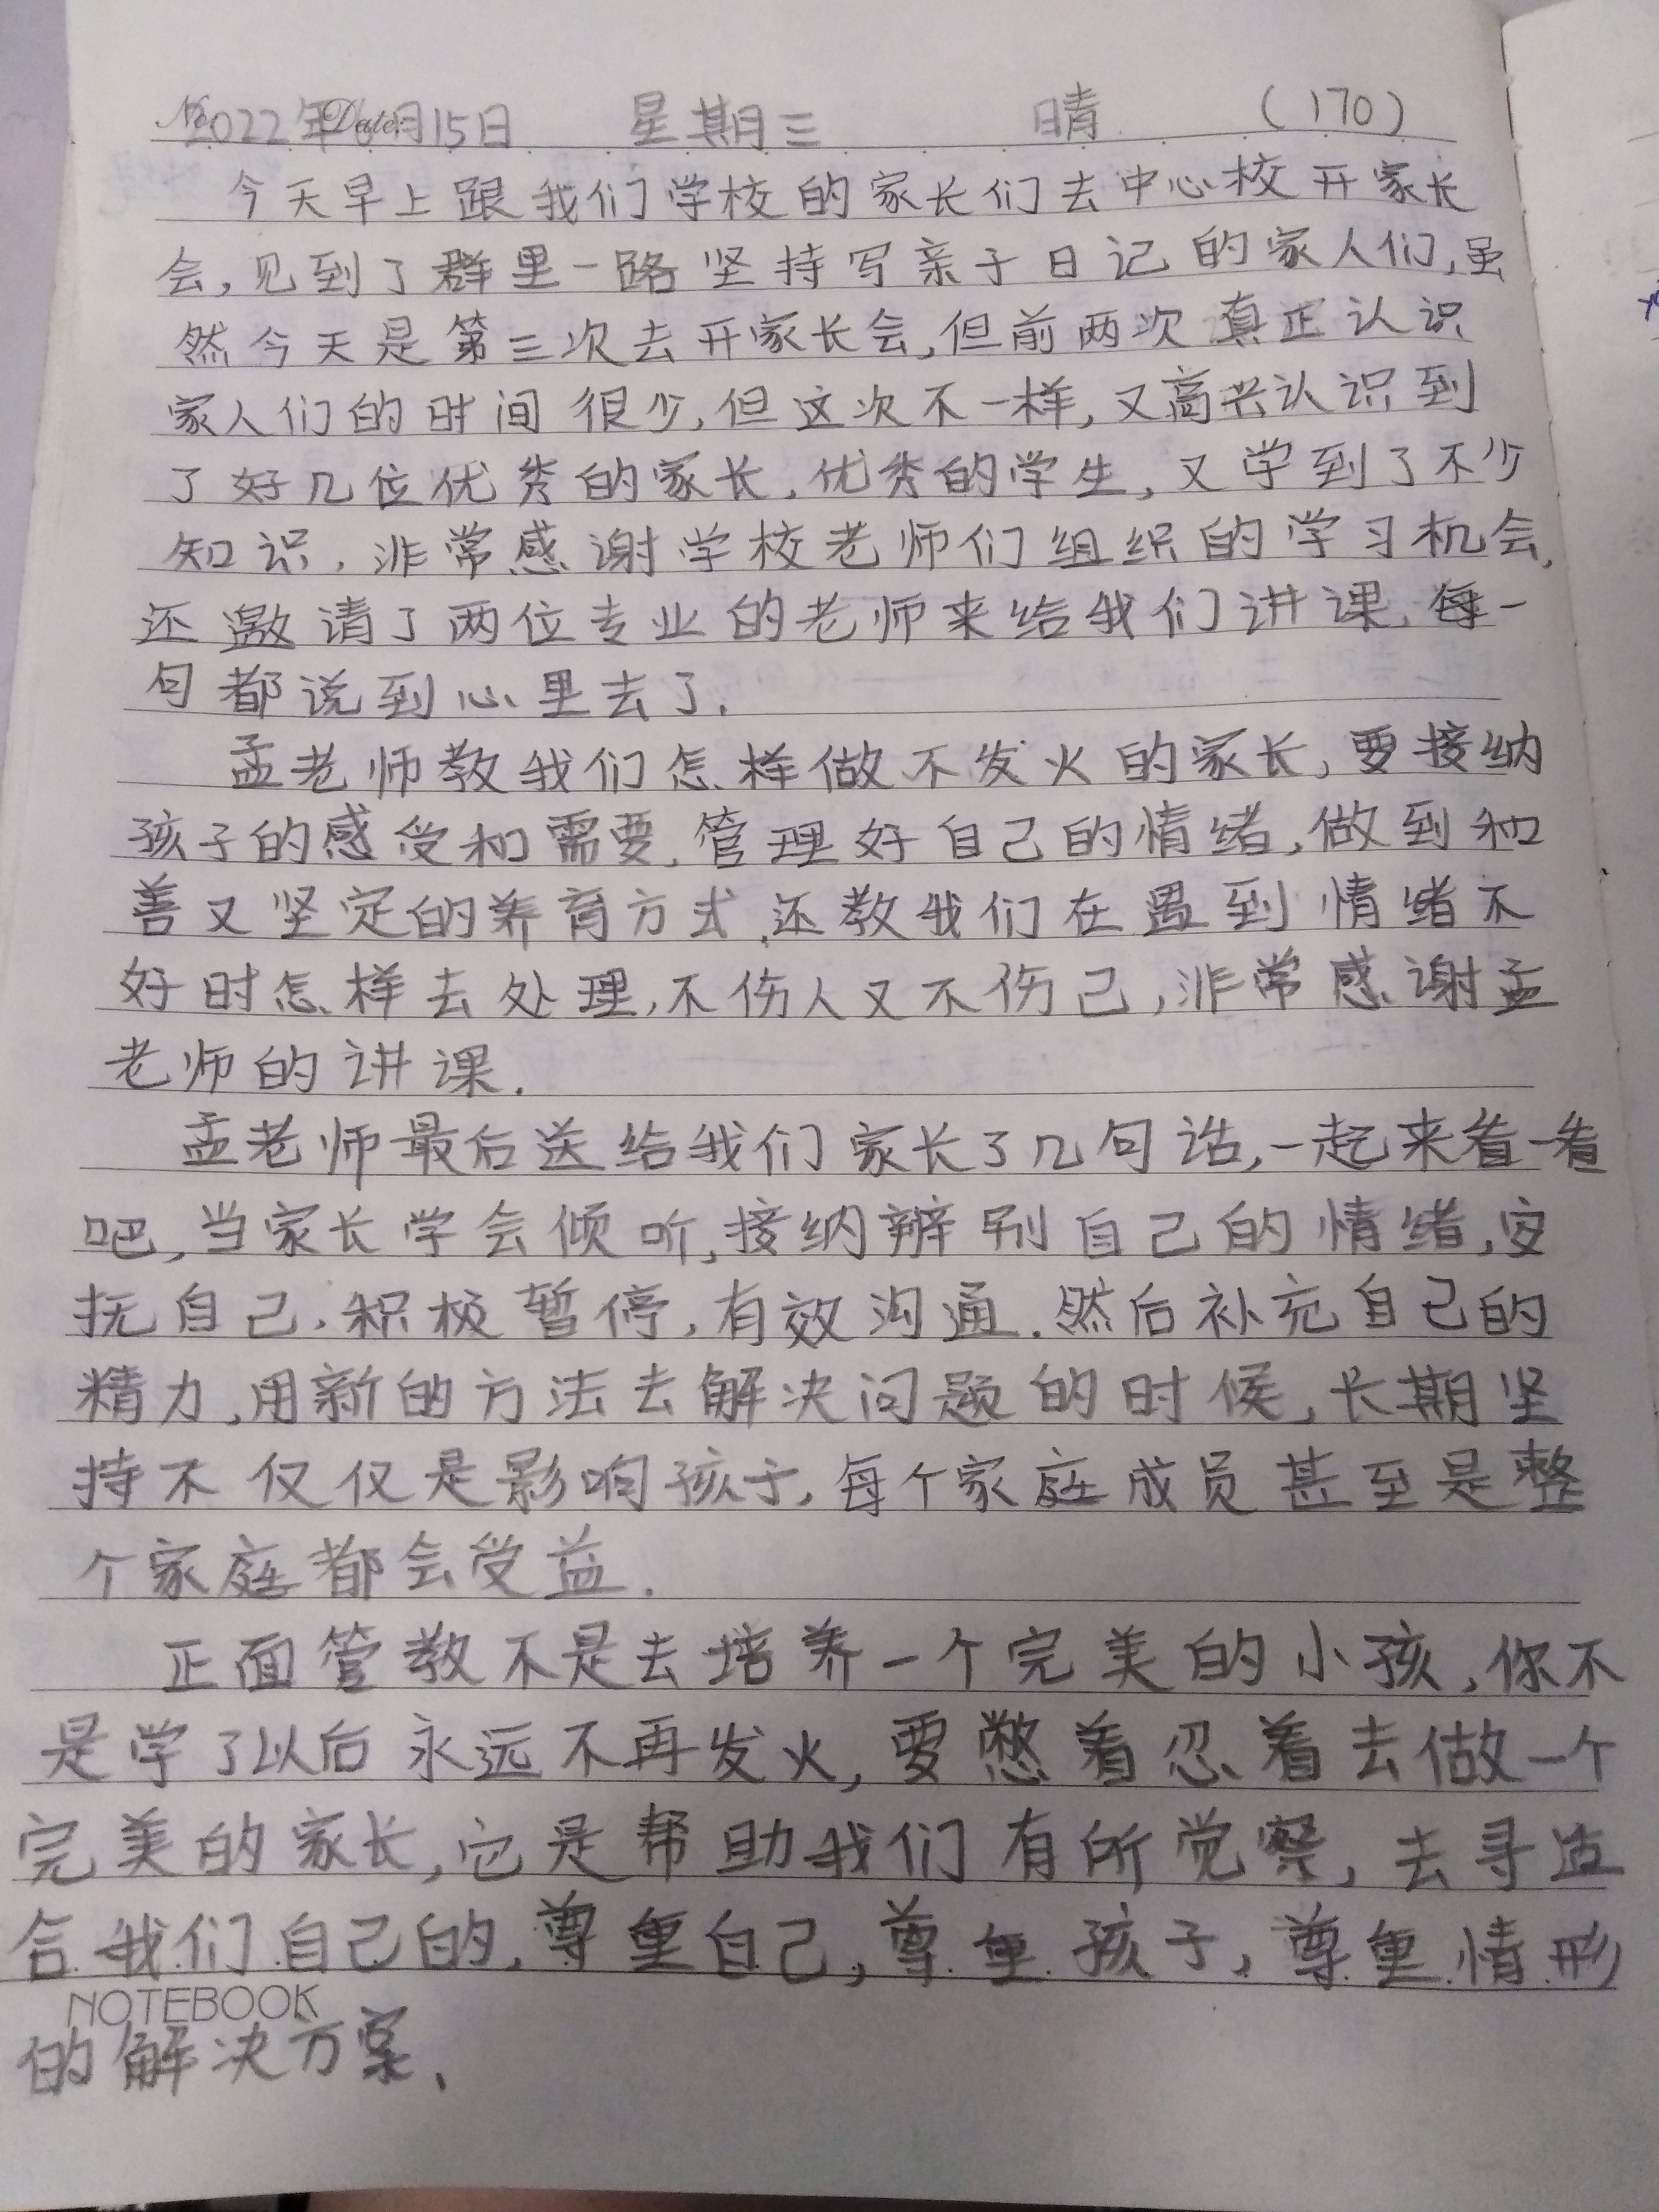 No. Date:
2022年6月15日 星期三 晴 (170)
今天早上跟我们学校的家长们去中心校开家长
会,见到了群里一路坚持写亲子日记的家人们,虽
然今天是第三次去开家长会,但前两次真正认识
家人们的时间很少,但这次不一样,又高兴认识到
了好几位优秀的家长,优秀的学生,又学到了不少
知识,非常感谢学校老师们组织的学习机会,
还邀请了两位专业的老师来给我们讲课,每一
句都说到心里去了.
孟老师教我们怎样做不发火的家长,要接纳
孩子的感受和需要,管理好自己的情绪,做到和
善又坚定的养育方式,还教我们在遇到情绪不
好时怎样去处理,不伤人又不伤己,非常感谢孟
老师的讲课.
孟老师最后送给我们家长了几句话,一起来看一看
吧,当家长学会倾听,接纳辨别自己的情绪,安
抚自己,积极暂停,有效沟通.然后补充自己的
精力,用新的方法去解决问题的时候,长期坚
持不仅仅是影响孩子,每个家庭成员甚至是整
个家庭都会受益.
正面管教不是去培养一个完美的小孩,你不
是学了以后永远不再发火,要憋着忍着去做一个
完美的家长,它是帮助我们有所觉察,去寻适
合我们自己的,尊重自己,尊重孩子,尊重情形
NOTEBOOK
的解决方案.